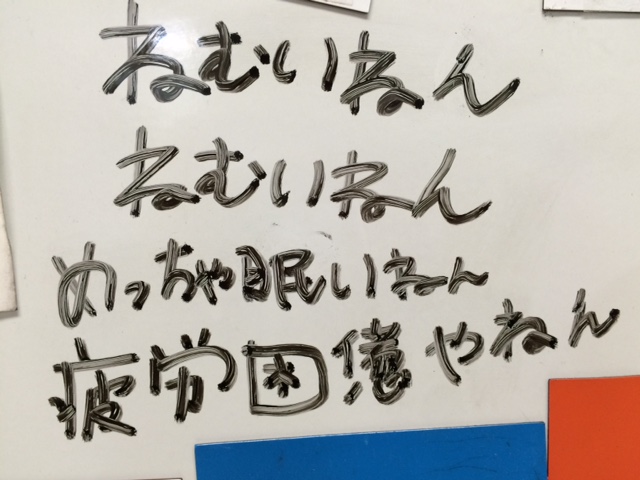 ねむいねん
ねむいねん
めっちゃ眠いねん
疲労困憊やねん